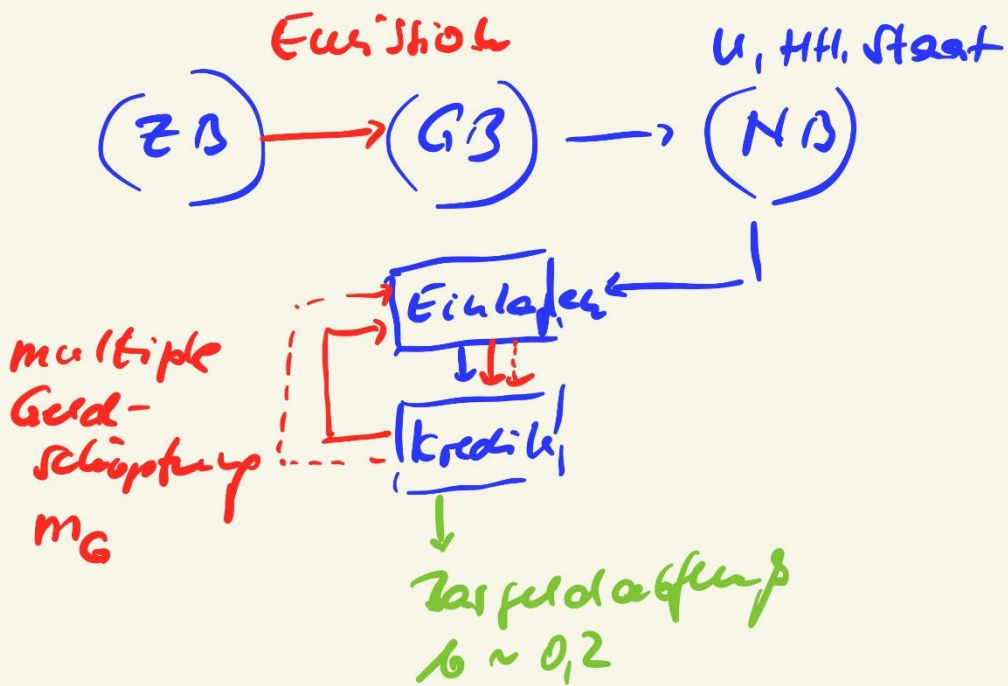 Emission
U, HH, Staat
ZB
GB
NB
Einlagen
multiple
Geld-
schöpfung
mG
Kredite
Bargeldabfluss
b ~ 0,2